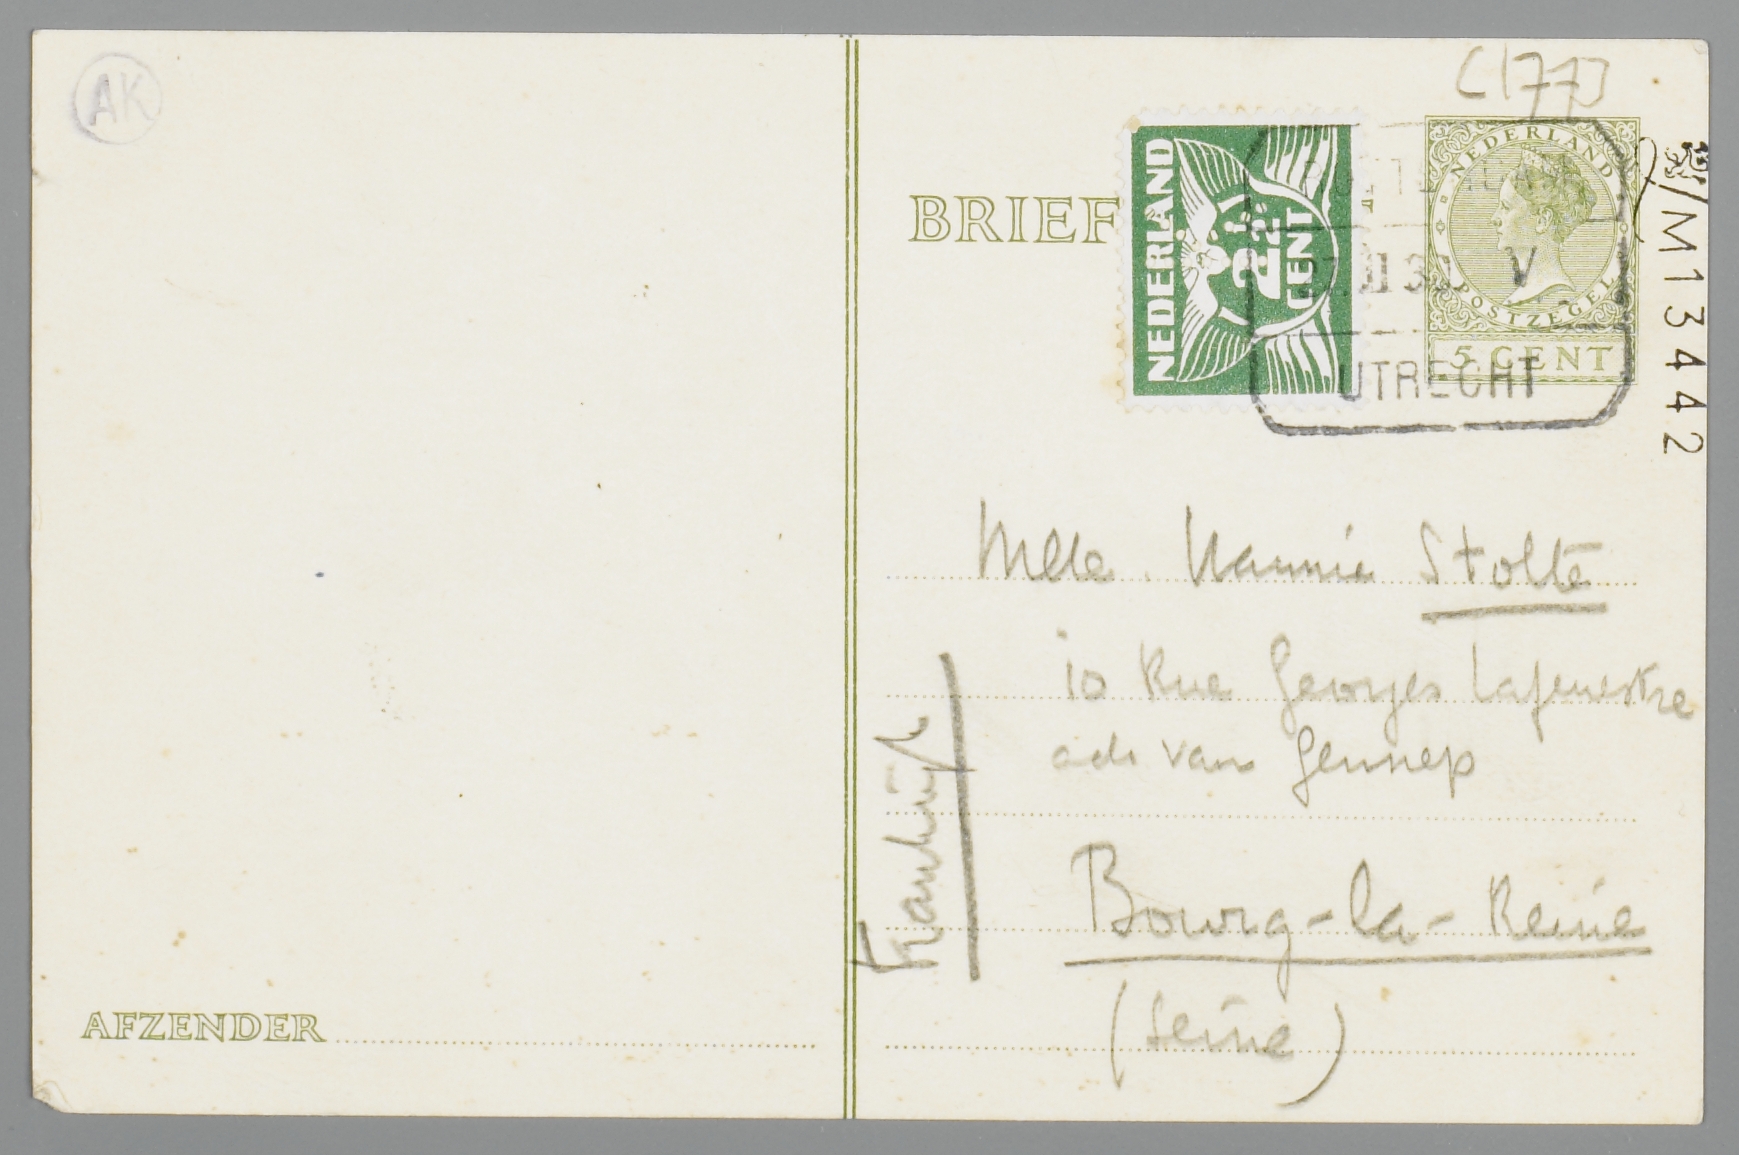 AK
[177]
BRIEF
NEDERLAND
2½
CENT
NEDERLAND
POSTZEGEL
5 CENT
V
UTRECHT
M13442
Melle. Nannie Stolte
10 Rue Georges Lafenestre
ads van Gennep
Bourg-la-Reine
(Seine)
Frankrijk
AFZENDER